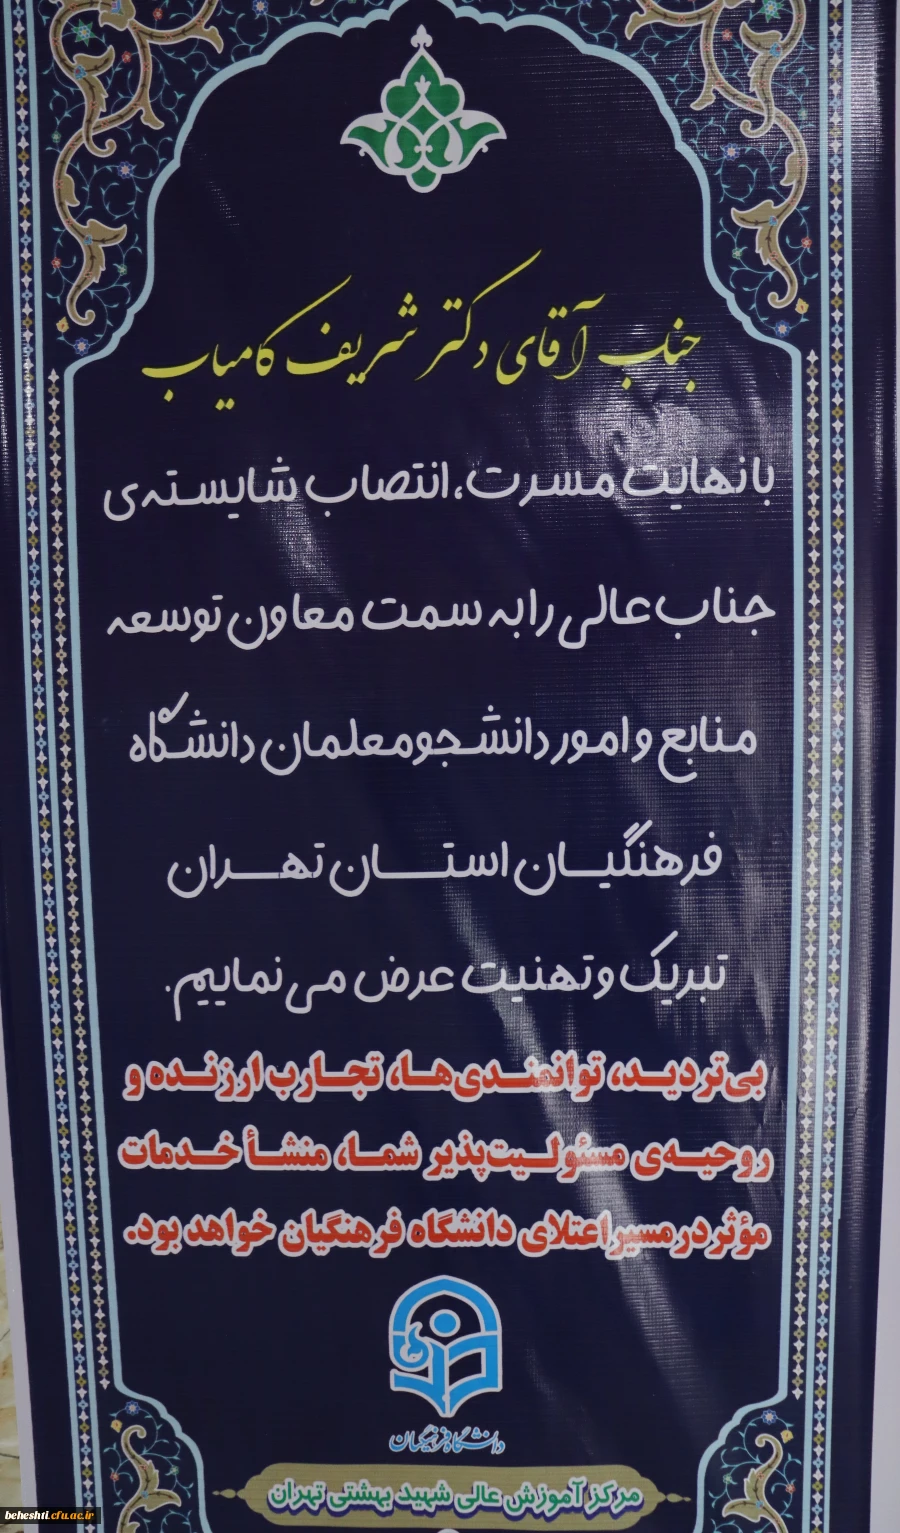 جناب آقای دکتر شریف کامیاب
با نهایت مسرت، انتصاب شایسته‌ی
جناب عالی را به سمت معاون توسعه
منابع و امور دانشجو معلمان دانشگاه
فرهنگیان استان تهران
تبریک و تهنیت عرض می نماییم.
بی‌تردید، توانمندی‌ها، تجارب ارزنده و
روحیه‌ی مسئولیت‌پذیر شما، منشأ خدمات
مؤثر در مسیر اعتلای دانشگاه فرهنگیان خواهد بود.
دانشگاه فرهنگیان
مرکز آموزش عالی شهید بهشتی تهران
beheshti.cfu.ac.ir